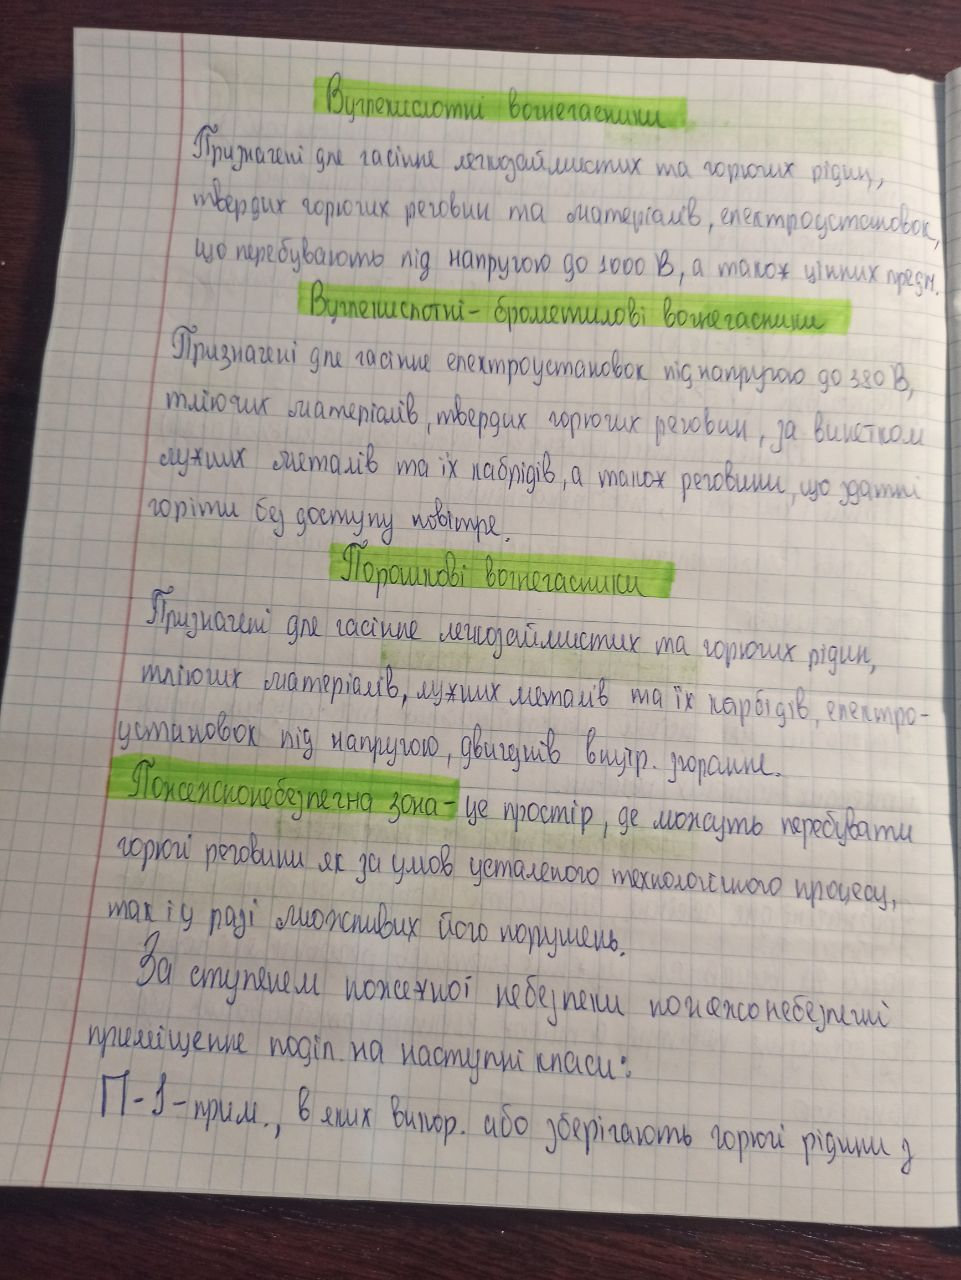 Вуглекислотні вогнегасники
Призначені для гасіння легкозаймистих та горючих рідин,
твердих горючих речовин та матеріалів, електроустановок,
що перебувають під напругою до 1000 В, а також цінних предм.
Вуглекислотні - брометилові вогнегасники
Призначені для гасіння електроустановок під напругою до 380 В,
тліючих матеріалів, твердих горючих речовин, за винятком
лужних металів та їх кабрідів, а також речовини, що здатні
горіти без доступу повітря.
Порошкові вогнегасники
Призначені для гасіння легкозаймистих та горючих рідин,
тліючих матеріалів, лужних металів та їх карбідів, електро-
установок під напругою, двигунів внутр. згорання.
Пожежнонебезпечна зона - це простір, де можуть перебувати
горючі речовини як за умов усталеного технологічного процесу,
так і у разі можливих його порушень.
За ступенем пожежної небезпеки пожежонебезпечні
приміщення поділ. на наступні класи:
П-1 - прим., в яких викор. або зберігають горючі рідини з